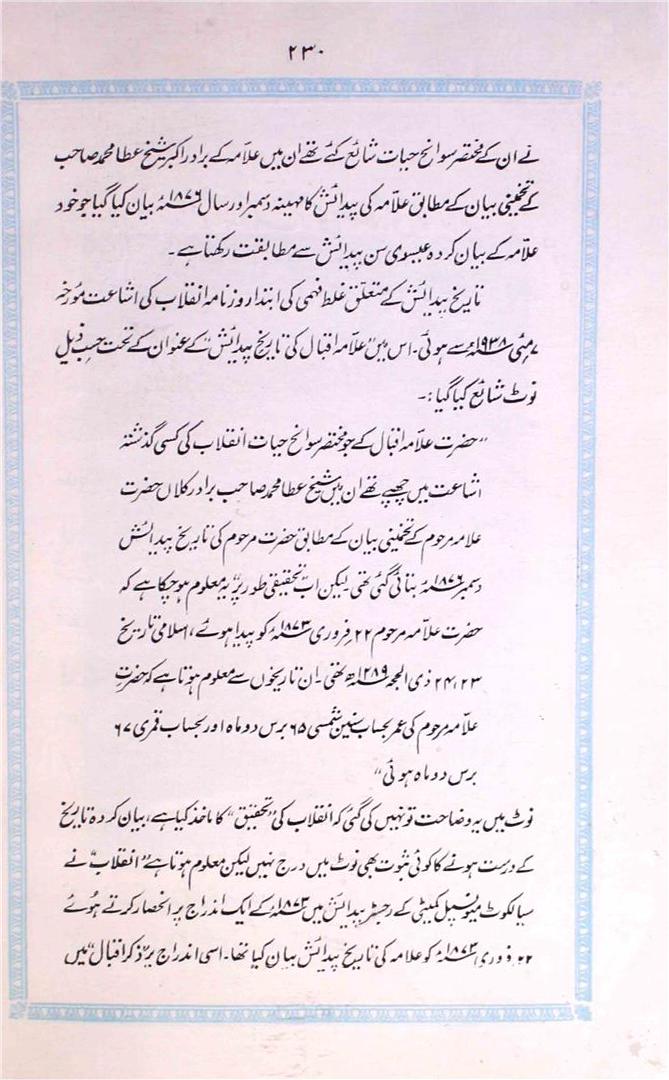 ۲۳۰
نے ان کے مختصر سوانح حیات شائع کئے تھے ان میں علامہ کے برادر اکبر شیخ عطا محمد صاحب
کے تخمینی بیان کے مطابق علامہ کی پیدائش کا مہینہ دسمبر اور سال ۱۸۷۶ء بیان کیا گیا جو خود
علامہ کے بیان کردہ عیسوی سن پیدائش سے مطابقت رکھتا ہے۔
تاریخ پیدائش کے متعلق غلط فہمی کی ابتدا روزنامہ انقلاب کی اشاعت مورخہ
۷ مئی ۱۹۳۸ء سے ہوئی۔ اس میں "علامہ اقبال کی تاریخ پیدائش" کے عنوان کے تحت حسب ذیل
نوٹ شائع کیا گیا :۔
"حضرت علامہ اقبال کے جو مختصر سوانح حیات انقلاب کی کسی گذشتہ
اشاعت میں چھپے تھے ان میں شیخ عطا محمد صاحب برادر کلاں حضرت
علامہ مرحوم کے تخمینی بیان کے مطابق حضرت مرحوم کی تاریخ پیدائش
دسمبر ۱۸۷۶ء بتائی گئی تھی۔ لیکن اب تحقیقی طور پر یہ معلوم ہو چکا ہے کہ
حضرت علامہ مرحوم ۲۲ فروری ۱۸۷۳ء کو پیدا ہوئے، اسلامی تاریخ
۲۳، ۲۴ ذی الحجہ ۱۲۸۹ھ تھی۔ ان تاریخوں سے معلوم ہوتا ہے کہ حضرت
علامہ مرحوم کی عمر بحساب سنین شمسی ۶۵ برس دو ماہ اور بحساب قمری ۶۷
برس دو ماہ ہوئی"
نوٹ میں یہ وضاحت تو نہیں کی گئی کہ انقلاب کی "تحقیق" کا ماخذ کیا ہے، بیان کردہ تاریخ
کے درست ہونے کا کوئی ثبوت بھی نوٹ میں درج نہیں لیکن معلوم ہوتا ہے "انقلاب" نے
سیالکوٹ میونسپل کمیٹی کے رجسٹر پیدائش میں ۱۸۷۳ء کے ایک اندراج پر انحصار کرتے ہوئے
۲۲ فروری ۱۸۷۳ء کو علامہ کی تاریخ پیدائش بیان کیا تھا۔ اسی اندراج پر "ذکر اقبال" میں